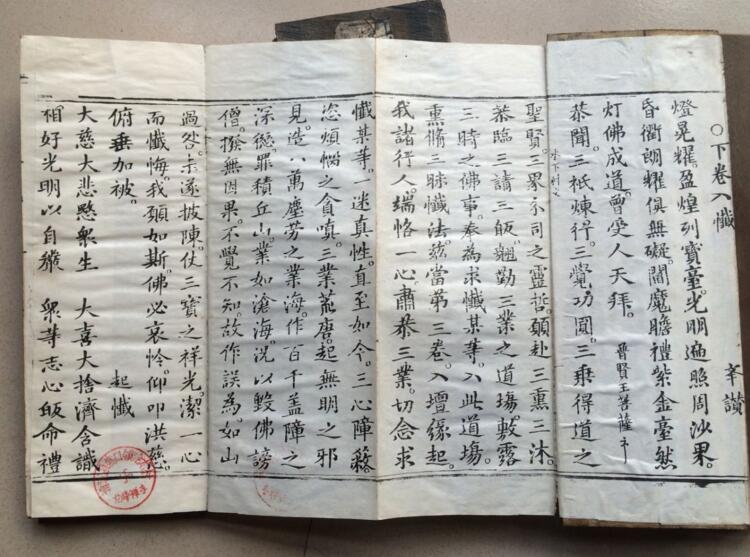 ○下卷入懺 举讃
燈晃耀。盈煌列寶臺。光明遍照周沙果。
昏衢朗耀俱無礙。閻魔瞻禮紫金臺。然
灯佛成道。曾受人天拜。普賢王菩薩
恭聞。三祇煉行。三覺功圓。三乘得道之
聖賢。三界示司之靈哲。願赴三熏三沐。
恭臨三請三皈。翹勤三業之道塲。敷露
三時之佛事。奉為求懺某等。入此道塲。
熏脩三昧懺法。茲當第三卷。入壇緣起。
我諸行人。端恪一心。肅恭三業。切念求
懺某等。一迷真性。直至如今。三心陣籟
恣煩惱之貪嗔。三業荒唐。起無明之邪
見。造八萬塵勞之業海。作百千盖障之
深德。罪積丘山。業如滄海。况以毀佛謗
僧。撥無因果。不覺不知。故作誤為。如山
過咎。未遂披陳。仗三寶之祥光。潔一心
而懺悔。我願如斯。佛必哀怜。仰叩洪慈。
俯垂加被。 起懺
大慈大悲愍衆生 大喜大捨濟含識
相好光明以自嚴 衆等志心皈命禮